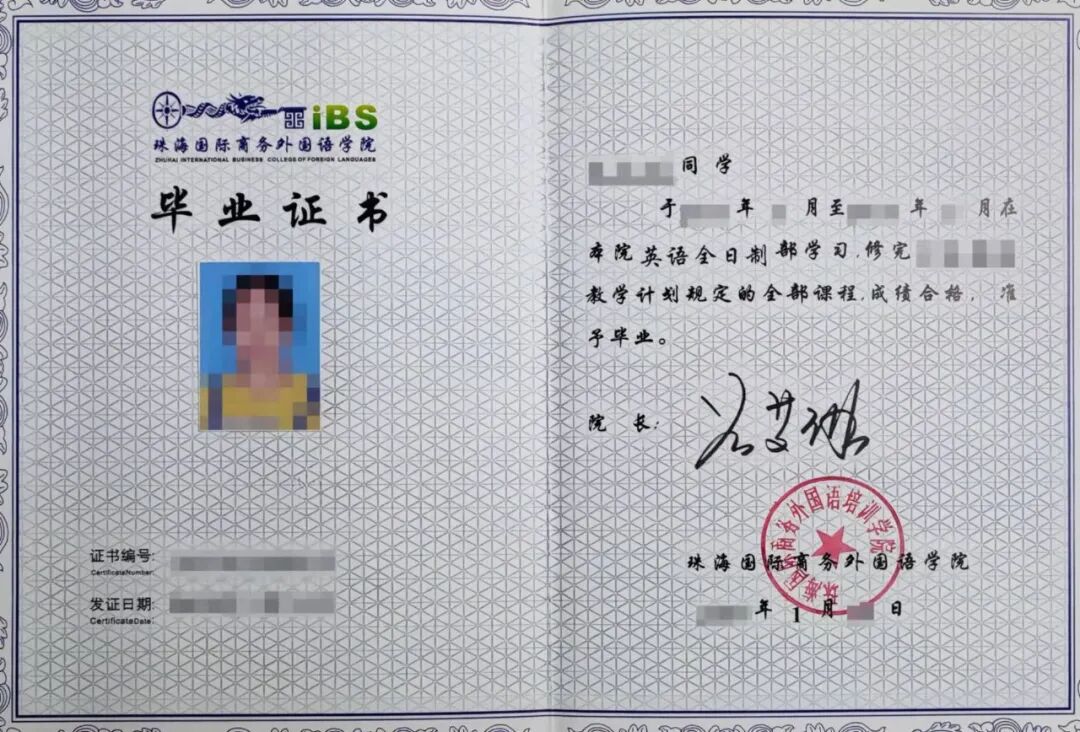 iBS
珠海国际商务外国语学院
ZHUHAI INTERNATIONAL BUSINESS COLLEGE OF FOREIGN LANGUAGES
毕业证书
证书编号:
CertificateNumber:
发证日期:
CertificateDate:
同学
于 年 月至 年 月在
本院英语全日制部学习,修完
教学计划规定的全部课程,成绩合格,准
予毕业。
院长:
珠海国际商务外国语培训学院
珠海国际商务外国语学院
年1月 日